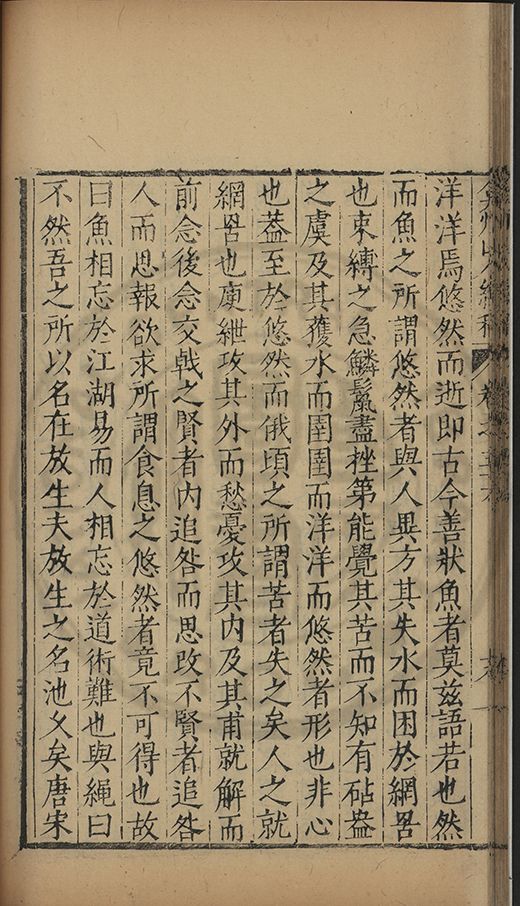 弇州山人續稿 卷之五六
洋洋焉悠然而逝即古今善狀魚者莫兹語若也然
而魚之所謂悠然者與人異方其失水而困於網罟
也束縛之急鱗鬛盡挫第能覺其苦而不知有砧盎
之虞及其獲水而圉圉而洋洋而悠然者形也非心
也葢至於悠然而俄頃之所謂苦者失之矣人之就
網罟也庾紲攻其外而愁憂攻其内及其甫就解而
前念後念交戟之賢者内追咎而思改不賢者追咎
人而思報欲求所謂食息之悠然者竟不可得也故
曰魚相忘於江湖易而人相忘於道術難也與繩曰
不然吾之所以名在放生夫放生之名池乆矣唐宋